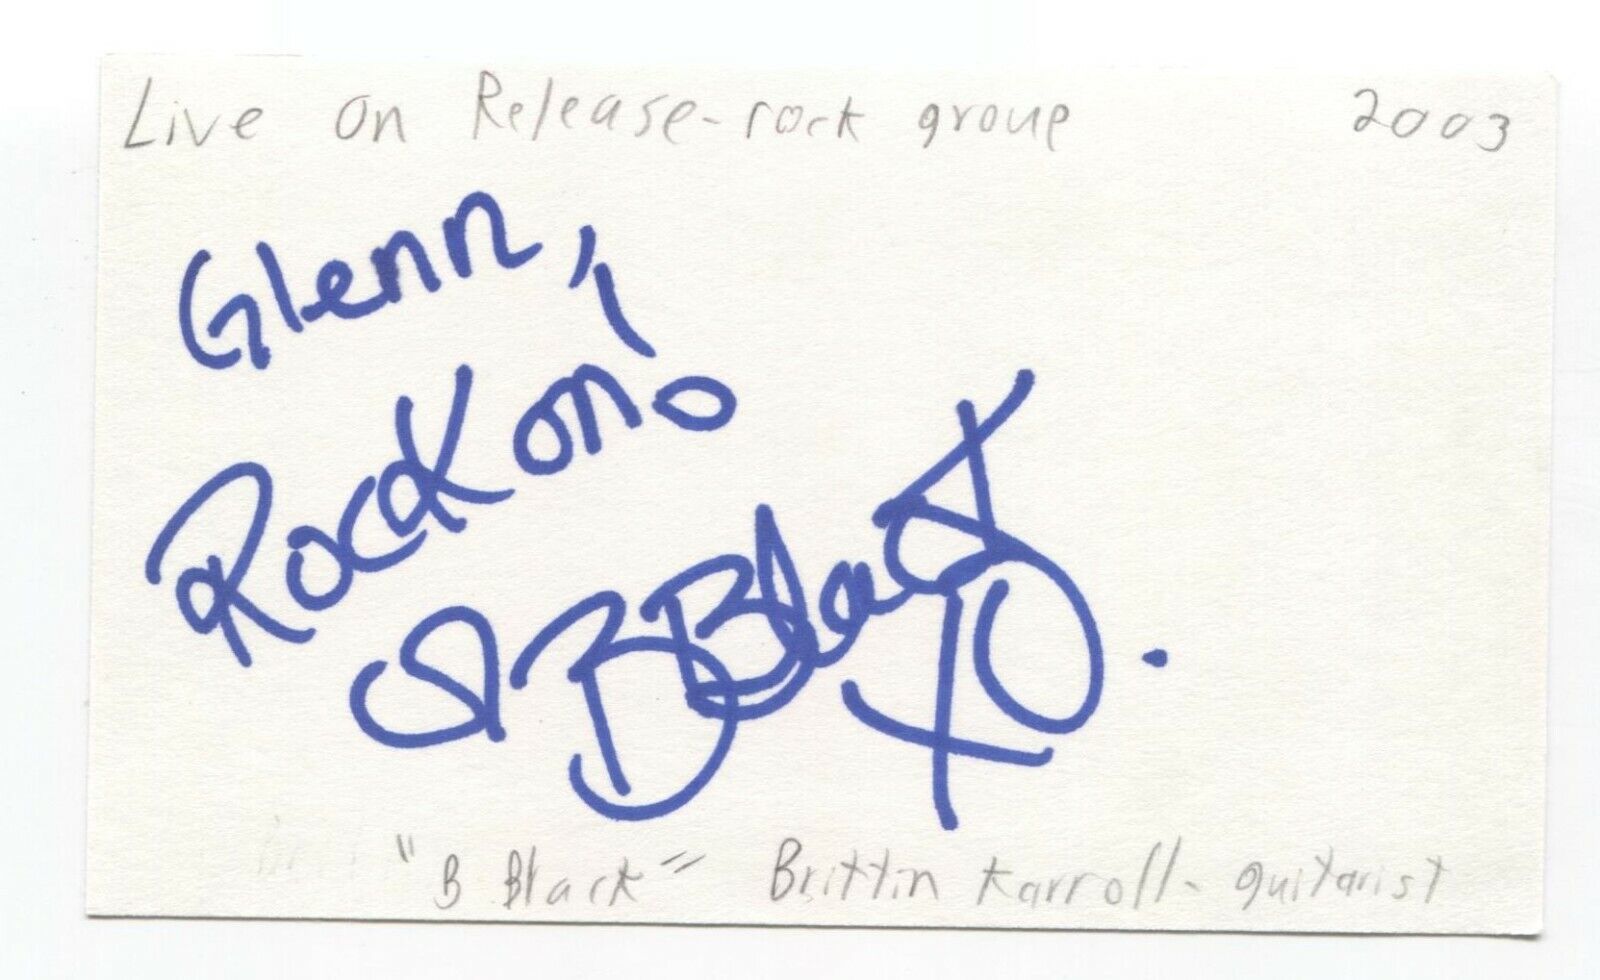 Live on Release-rock group 2003
Glenn,
Rock on!
B Black
"B Black" Brittin Karroll-guitarist